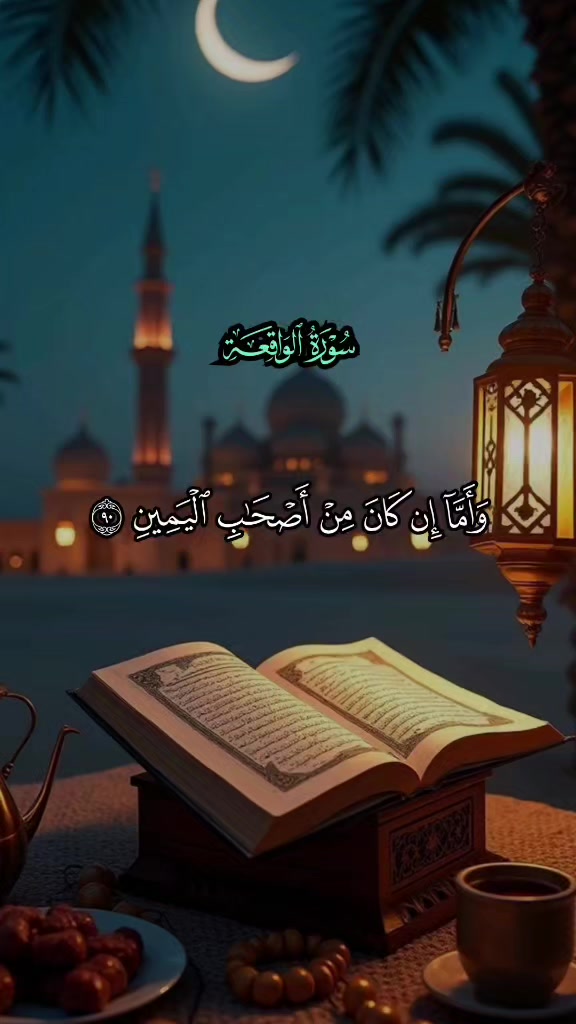 سُورَةُ ٱلْوَاقِعَةِ
وَأَمَّآ إِن كَانَ مِنْ أَصْحَٰبِ ٱلْيَمِينِ ٩٠